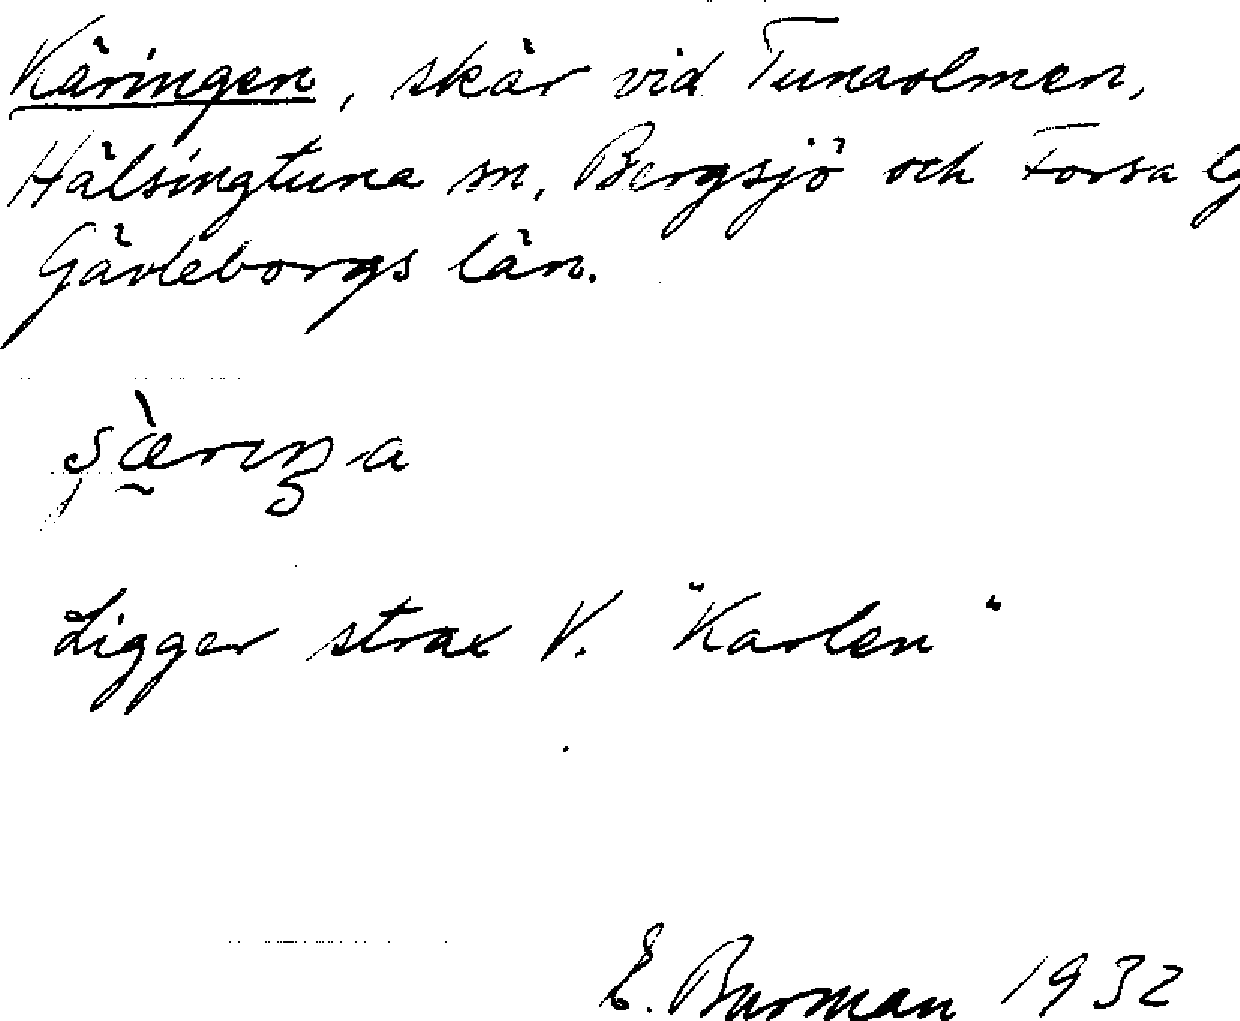 Käringen, skär vid Tunaolmen,
Hälsingtuna sn, Bergsjö och Forsa
Gävleborgs län.
Ligger strax V. "Karlen"
E. Burman 1932